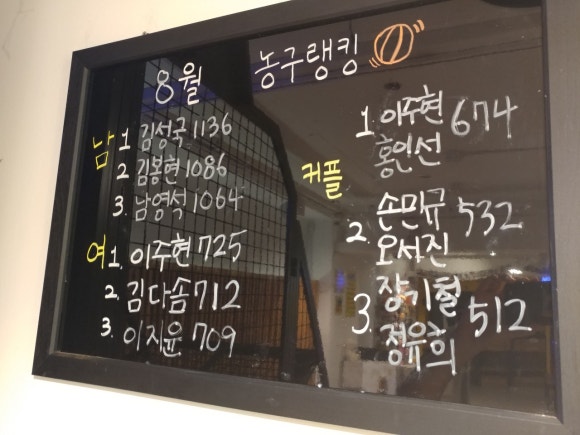 8월 농구랭킹
남 1 김성국 1136
2 김봉현 1086
3. 남영석 1064
여 1. 이주현 725
2. 김다솜 712
3. 이지윤 709
커플
1. 이주현 674
홍인선
2. 손민규 532
오서진
3. 장기철 512
정유희